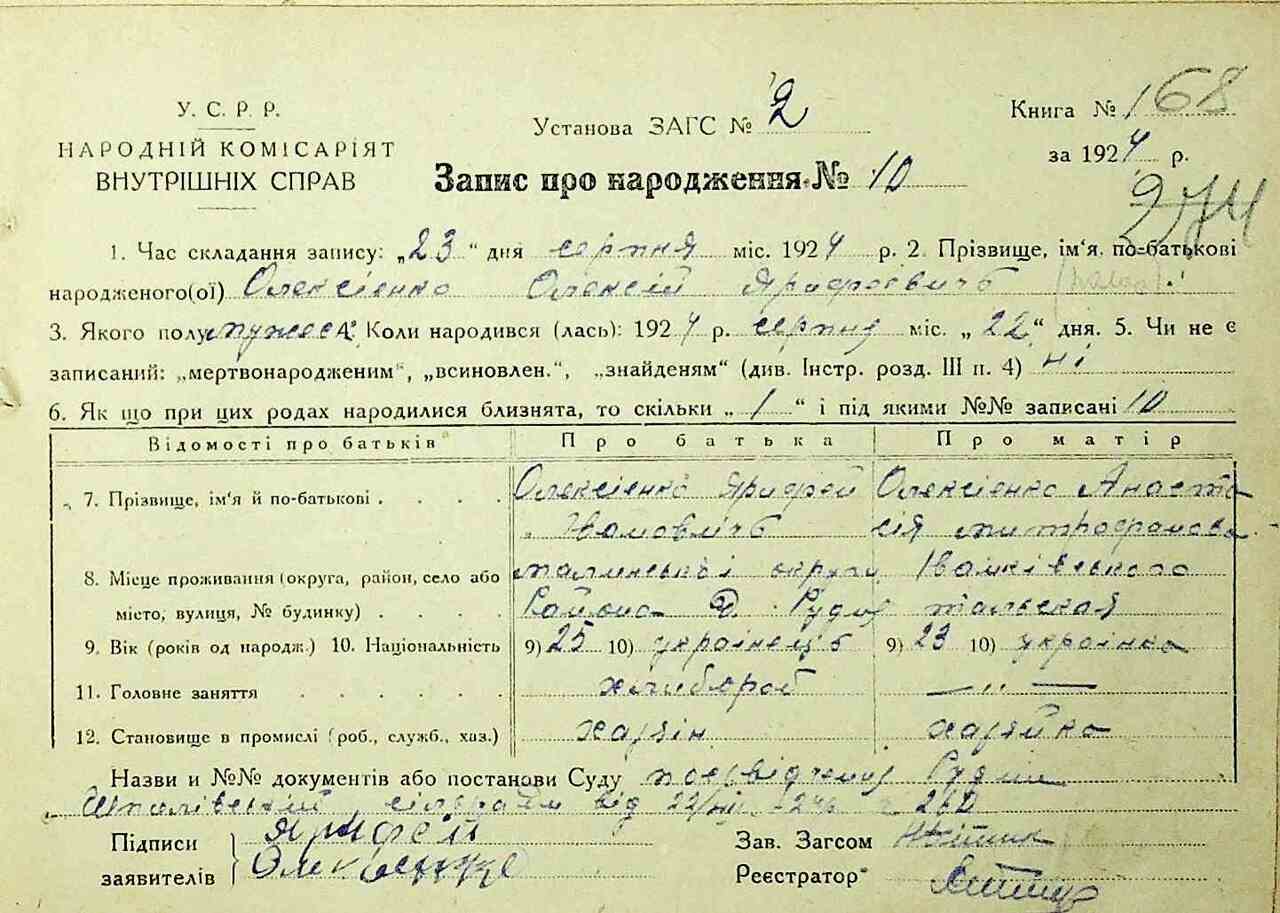 У. С. Р. Р.
НАРОДНІЙ КОМІСАРІЯТ
ВНУТРІШНІХ СПРАВ
Установа ЗАГС № 2
Запис про народження № 10
Книга № 1 68
за 1924 р.
274
1. Час складання запису: „23“ дня серпня міс. 1924 р. 2. Прізвище, ім'я, по-батькові
народженого(ої) Олексієнко Олексій Ярифеевичь
3. Якого полу мужеска 4. Коли народився (лась): 1924 р. серпня міс. „22“ дня. 5. Чи не є
записаний: „мертвонародженим“, „всиновлен.“, „знайденям“ (див. Інстр. розд. III п. 4) ні
6. Як що при цих родах народилися близнята, то скільки „1“ і під якими №№ записані 10
Відомості про батьків Про батька Про матір
7. Прізвище, ім'я й по-батькові . . . . Олексіенко Ярифей Олексієнко Анаста
Івановичь сія митрофанова
8. Місце проживання (округа, район, село або малинськоі округи Іванківського
місто, вулиця, № будинку) . . . . Района Д. Рудня тальская
9. Вік (років од народж.) 10. Національність 9) 25 10) украінець 9) 23 10) украінка
11. Головне заняття . . . . . . хлибороб — „ —
12. Становище в промислі (роб., служб., хаз.) хазяін хазяйка
Назви и №№ документів або постанови Суду посвідчення Рудня
сільради від 22/VIII-24
Підписи Ярифей
заявителів Олексієнко
Зав. Загсом
Реєстратор